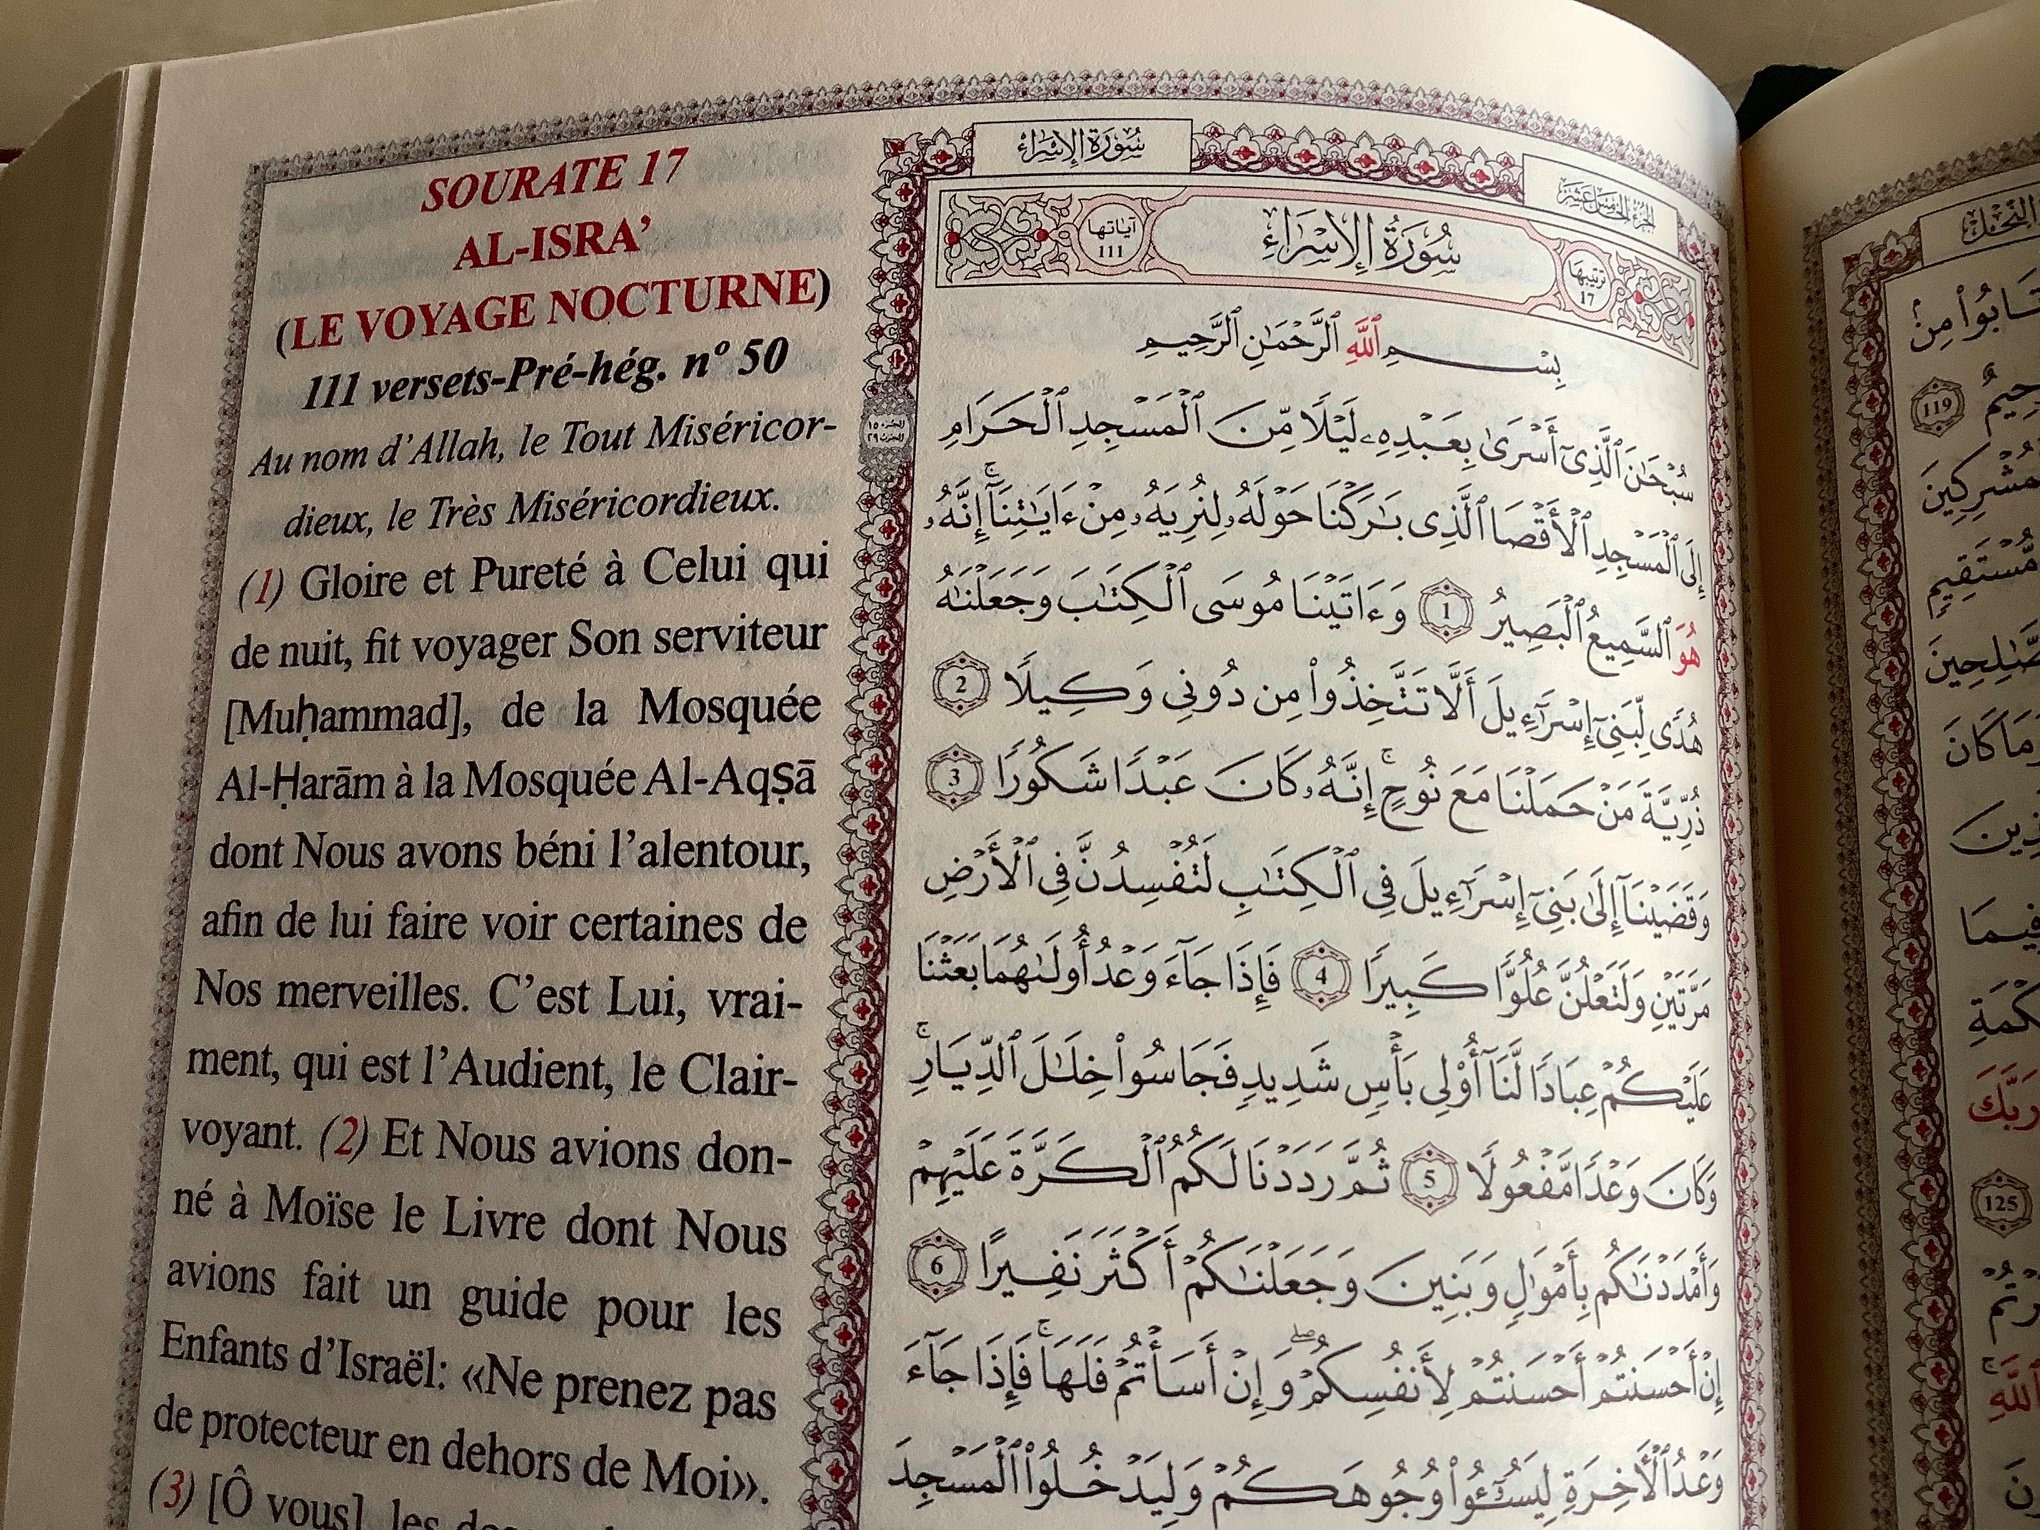 SOURATE 17
AL-ISRA’
(LE VOYAGE NOCTURNE)
111 versets-Pré-hég. n° 50
Au nom d’Allah, le Tout Miséricor-
dieux, le Très Miséricordieux.
(1) Gloire et Pureté à Celui qui
de nuit, fit voyager Son serviteur
[Muḥammad], de la Mosquée
Al-Ḥarām à la Mosquée Al-Aqṣā
dont Nous avons béni l’alentour,
afin de lui faire voir certaines de
Nos merveilles. C’est Lui, vrai-
ment, qui est l’Audient, le Clair-
voyant. (2) Et Nous avions don-
né à Moïse le Livre dont Nous
avions fait un guide pour les
Enfants d’Israël: «Ne prenez pas
de protecteur en dehors de Moi».
(3) [Ô vous], les
سُورَةُ الإِسْرَاءِ
الجزء الخامس عشر
ترتيبها 17
سُورَةُ الإِسْرَاءِ
آياتها 111
بِسْمِ ٱللَّهِ ٱلرَّحْمَٰنِ ٱلرَّحِيمِ
سُبْحَٰنَ ٱلَّذِىٓ أَسْرَىٰ بِعَبْدِهِۦ لَيْلًا مِّنَ ٱلْمَسْجِدِ ٱلْحَرَامِ
إِلَى ٱلْمَسْجِدِ ٱلْأَقْصَا ٱلَّذِى بَٰرَكْنَا حَوْلَهُۥ لِنُرِيَهُۥ مِنْ ءَايَٰتِنَآ ۚ إِنَّهُۥ
هُوَ ٱلسَّمِيعُ ٱلْبَصِيرُ 1 وَءَاتَيْنَا مُوسَى ٱلْكِتَٰبَ وَجَعَلْنَٰهُ
هُدًى لِّبَنِىٓ إِسْرَٰٓءِيلَ أَلَّا تَتَّخِذُوا۟ مِن دُونِى وَكِيلًا 2
ذُرِّيَّةَ مَنْ حَمَلْنَا مَعَ نُوحٍ ۚ إِنَّهُۥ كَانَ عَبْدًا شَكُورًا 3
وَقَضَيْنَآ إِلَىٰ بَنِىٓ إِسْرَٰٓءِيلَ فِى ٱلْكِتَٰبِ لَتُفْسِدُنَّ فِى ٱلْأَرْضِ
مَرَّتَيْنِ وَلَتَعْلُنَّ عُلُوًّا كَبِيرًا 4 فَإِذَا جَآءَ وَعْدُ أُولَىٰهُمَا بَعَثْنَا
عَلَيْكُمْ عِبَادًا لَّنَآ أُو۟لِى بَأْسٍ شَدِيدٍ فَجَاسُوا۟ خِلَٰلَ ٱلدِّيَارِ ۚ
وَكَانَ وَعْدًا مَّفْعُولًا 5 ثُمَّ رَدَدْنَا لَكُمُ ٱلْكَرَّةَ عَلَيْهِمْ
وَأَمْدَدْنَٰكُم بِأَمْوَٰلٍ وَبَنِينَ وَجَعَلْنَٰكُمْ أَكْثَرَ نَفِيرًا 6
إِنْ أَحْسَنتُمْ أَحْسَنتُمْ لِأَنفُسِكُمْ ۖ وَإِنْ أَسَأْتُمْ فَلَهَا ۚ فَإِذَا جَآءَ
وَعْدُ ٱلْءَاخِرَةِ لِيَسُۥٓـُٔوا۟ وُجُوهَكُمْ وَلِيَدْخُلُوا۟ ٱلْمَسْجِدَ
الجزء ١٥
الحزب ٢٩
النَّحْل
مِنۢ
119
مُّسْتَقِيمٍ
وَمَا كَانَ
فِيمَا
رَبَّكَ
125